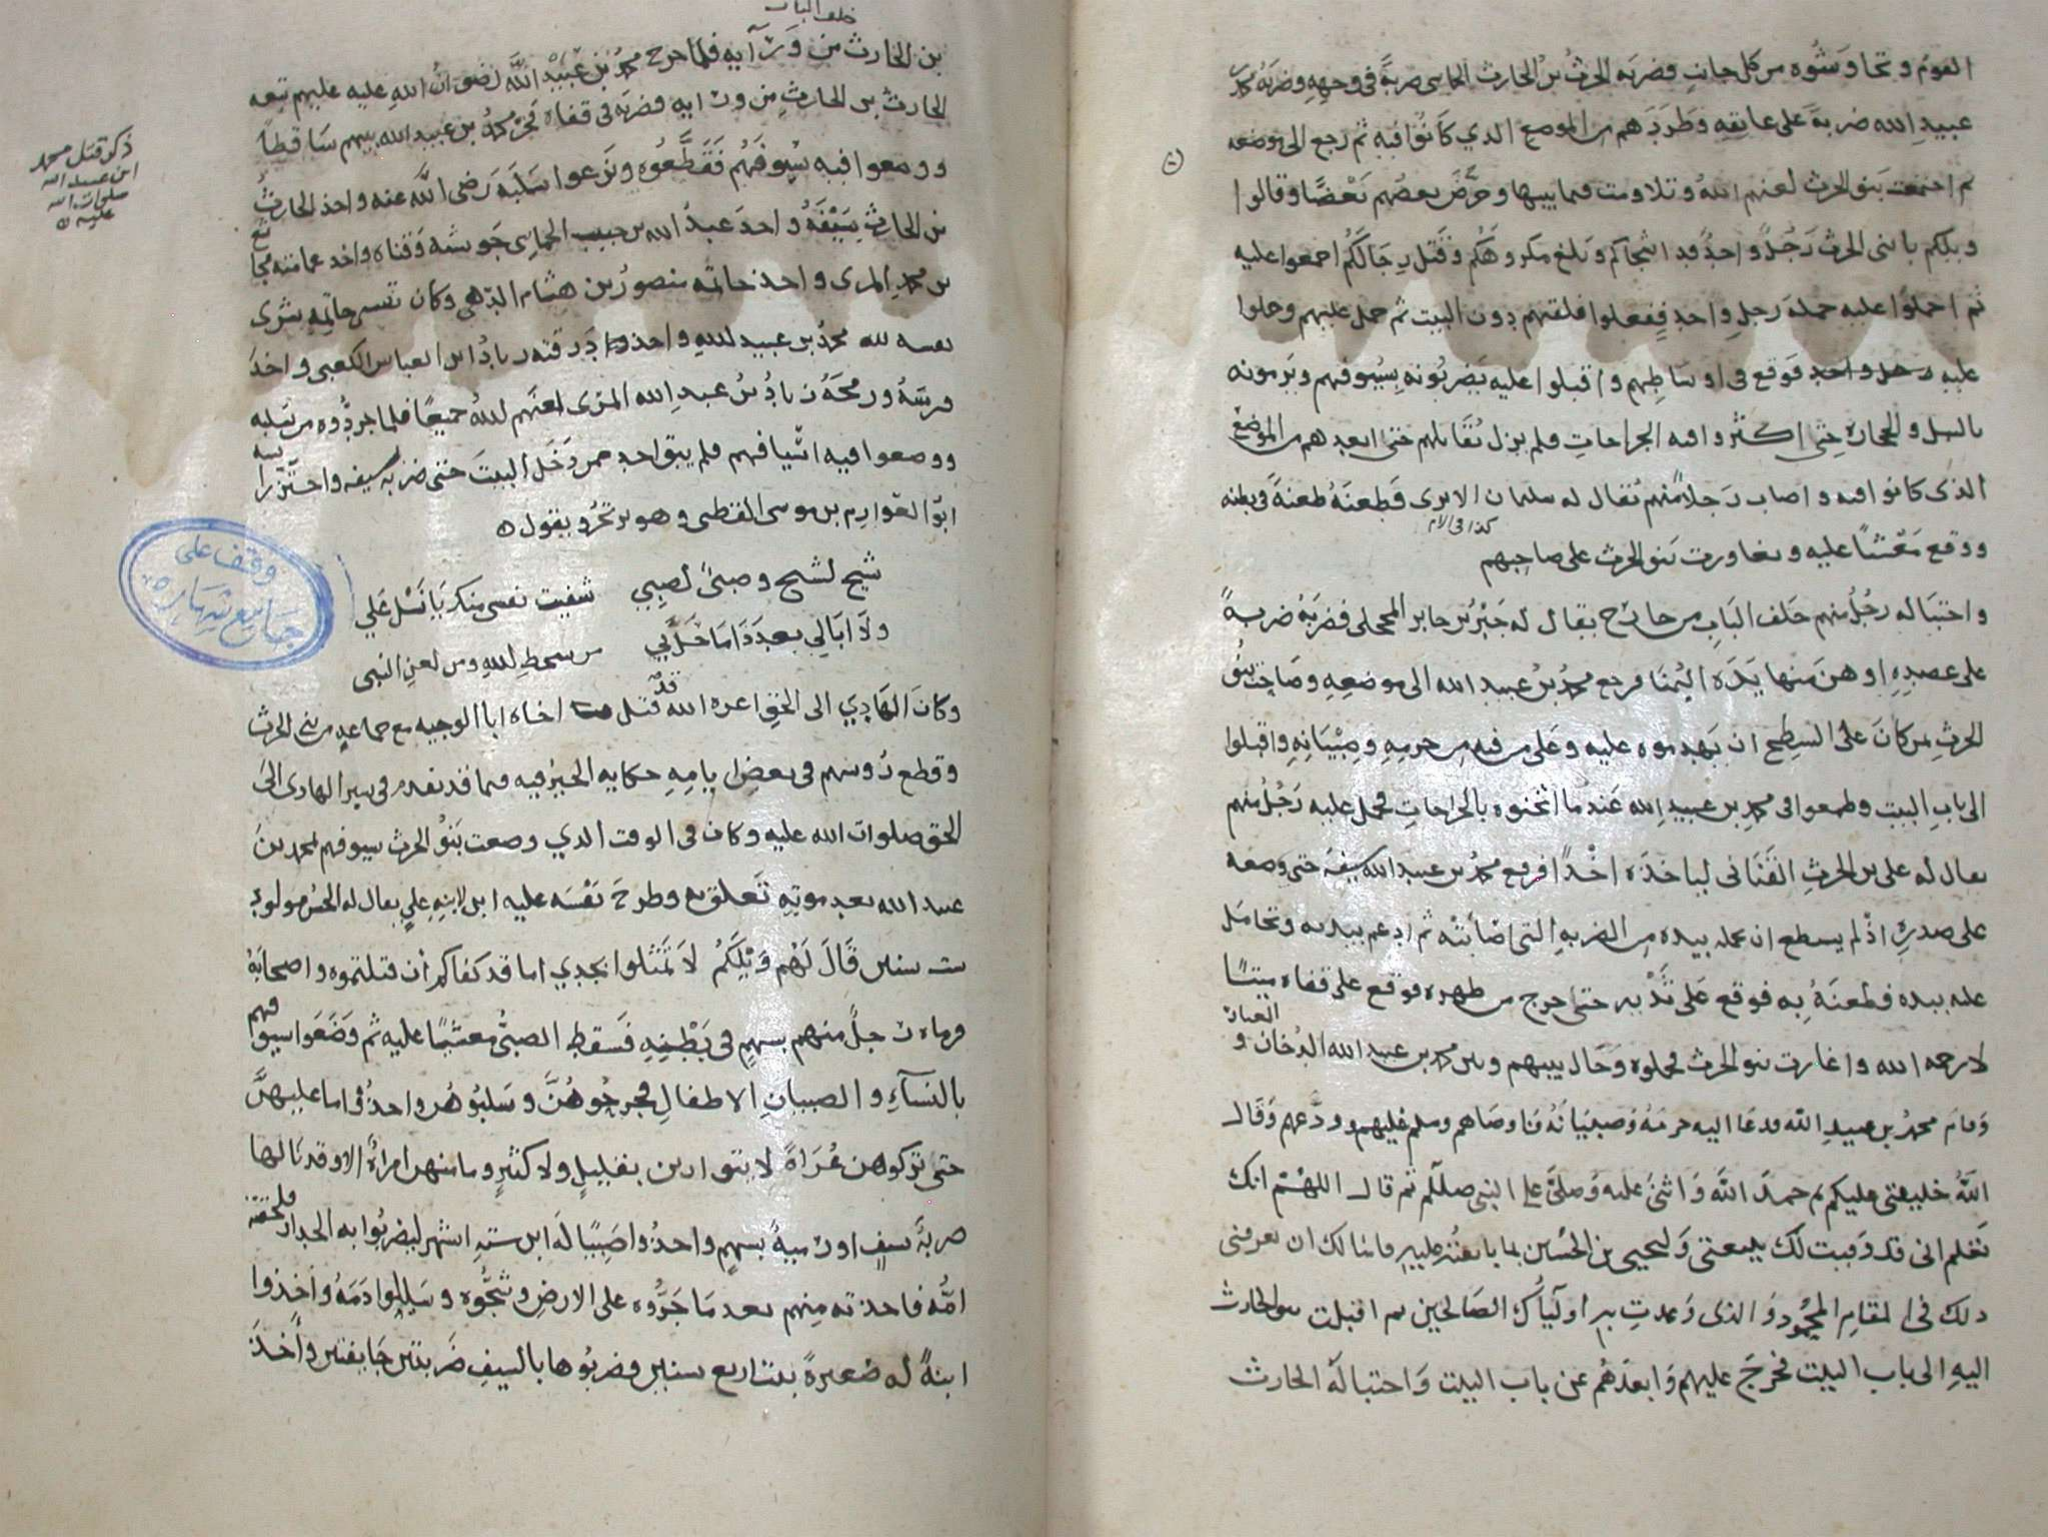 القوم وتحاوشوه من كل جانب فضربه الحرث بن الحارث الحماسي ضربةً في وجهه وضربه محمد بن
عبيد الله ضربةً على عاتقه وطردهم من الموضع الذي كانوا فيه ثم رجع الى موضعه
ثم اجتمعت بنو الحرث لعنهم الله وتلاومت فيما بينها وحرّض بعضهم بعضًا وقالوا
ويلكم يا بني الحرث رجُلٌ واحدٌ قد اشجاكم وبلغ مكروهكم وقتل رجالكم اجمعوا عليه
ثم احملوا عليه حملة رجل واحد ففعلوا فلقيهم دون البيت ثم حمل عليهم وحملوا
عليه رجل واحد فوقع في اوساطهم واقبلوا عليه يضربونه بسيوفهم ويرمونه
بالنبل والحجارة حتى اكثروا فيه الجراحات فلم يزل يُقاتلهم حتى ابعدهم من الموضع
الذي كانوا فيه واصاب رجلاً منهم يُقال له سليمان الابرى فطعنه طعنةً في بطنه
كذا في الام
ووقع مغشيًا عليه وتغاورت بنو الحرث على صاحبهم
واختبا له رجُلٌ منهم خلف الباب من خارج يقال له جبر بن جابر المحجلي فضربه ضربةً
على عضده اوهن منها يده اليُمنا فرجع محمد بن عبيد الله الى موضعه وصاحت بنو
الحرث بمن كان على السطح ان يهدموه عليه وعلى من فيه من حرمه وصبيانه واقبلوا
الى باب البيت وطمعوا في محمد بن عبيد الله عندما اثخنوه بالجراحات فحمل عليه رجُلٌ منهم
يقال له علي بن الحرث القناني لياخذه اخذًا فرفع محمد بن عبيد الله سيفه حتى وضعه
على صدره اذ لم يسطع ان يحمله بيده من الضربه التي اصابته ثم ادعم بيديه وتحامل
عليه بيده فطعنه به فوقع على ثديه حتى خرج من ظهره فوقع على قفاه ميتًا
لا رحمه الله واغارت بنو الحرث فحملوه وحال بينهم وبين محمد بن عبيد الله الدُخان و الغبار
وقام محمد بن عبيد الله فدعا اليه حرمه وصبيانه فاوصاهم وسلم عليهم وودعهم وقال
الله خليفتي عليكم ثم حمد الله واثنى عليه وصلى على النبي صللم ثم قال اللهم انك
تعلم انى قد وفيت لك ببيعتي وليحيى بن الحسين بما بايعته عليه فاسالك ان تعرفني
ذلك في المقام المحمود والذى وعدت به اولياك الصالحين ثم اقبلت بنو الحارث
اليه الى باب البيت فخرج عليهم وابعدهم عن باب البيت واختبا له الحارث
خلف الباب
بن الحارث من ورآيه فلما خرج محمد بن عبيد الله رضوان الله عليه عليهم تبعه
الحارث بن الحارث من ورايه فضربه في قفاه فخر محمد بن عبيد الله بينهم ساقطاً
ووضعوا فيه سيوفهم فقطّعوه ونزعوا سلبه رضى الله عنه واخذ الحارث
بن الحارث سيفه واخذ عبد الله بن حبيب الحماسي جوشنه وقناه واخذ عمامته
بن محمد المرى واخذ خاتمه منصور بن هشام الدهمي وكان نقش خاتمه شرى
نفسه لله محمد بن عبيد الله واخذ درقته زيادُ ابن العباس الكعبى واخذ
فرسه ورمحه زيادُ بن عبد الله المرى لعنهم الله جميعًا فلما جردوه من سلبه
ووضعوا فيه اسيافهم فلم يبق احد ممن دخل البيت حتى ضربه بسيفه واحتز راسه
ابو العوارم بن موسى القطى وهو يرتجز ويقول
شيخ لشيخ وصبيٌ لصبي شفيت نفسى منك يا نسل علي
ولا ابالي بعد ذا ما حل بي من سخط الله ومن لعن النبى
وكان الهادي الى الحق اعزه الله قد قتل اخاه ابا الوجيه مع جماعه من بنى الحرث
وقطع روسهم في بعض ايامه حكاية الخبر فيه فيما قد تقدم في سير الهادى الى
الحق صلوات الله عليه وكان في الوقت الذي وضعت بنو الحرث سيوفهم بمحمد بن
عبيد الله بعد موته تعلق به وطرح نفسه عليه ابن لابنه علي يقال له الحسن مولود
ست سنين قال لهم ويلكم لا تمثلوا بجدي اما قد كفاكم أن قتلتموه واصحابه
فرماه رجلٌ منهم بسهم في بطنه فسقط الصبي مغشيًا عليه ثم وضعوا سيوفهم
بالنسآء والصبيان الاطفال فجرحوهنّ وسلبوهن واخذوا ما عليهنّ
حتى تركوهن عُراةً لا يتوارين بقليل ولا كثير وما منهن امراةٌ الا وقد نالها
ضربة سيف او رميةٌ بسهم واخذوا صبيًا له ابن ستة اشهر ليضربوا به الجدار فلحقته
امّه فاخذته منهم بعد ما جرّوه على الارض وشجّوه وسيلوا دمه واخذوا
ابنةً له صغيرةً بنت اربع سنين فضربوها بالسيف ضربتين جايفتين واخذ
ذكر قتل محمد
ابن عبيد الله
صلوات الله
عليه
وقف على
جامع شهاره